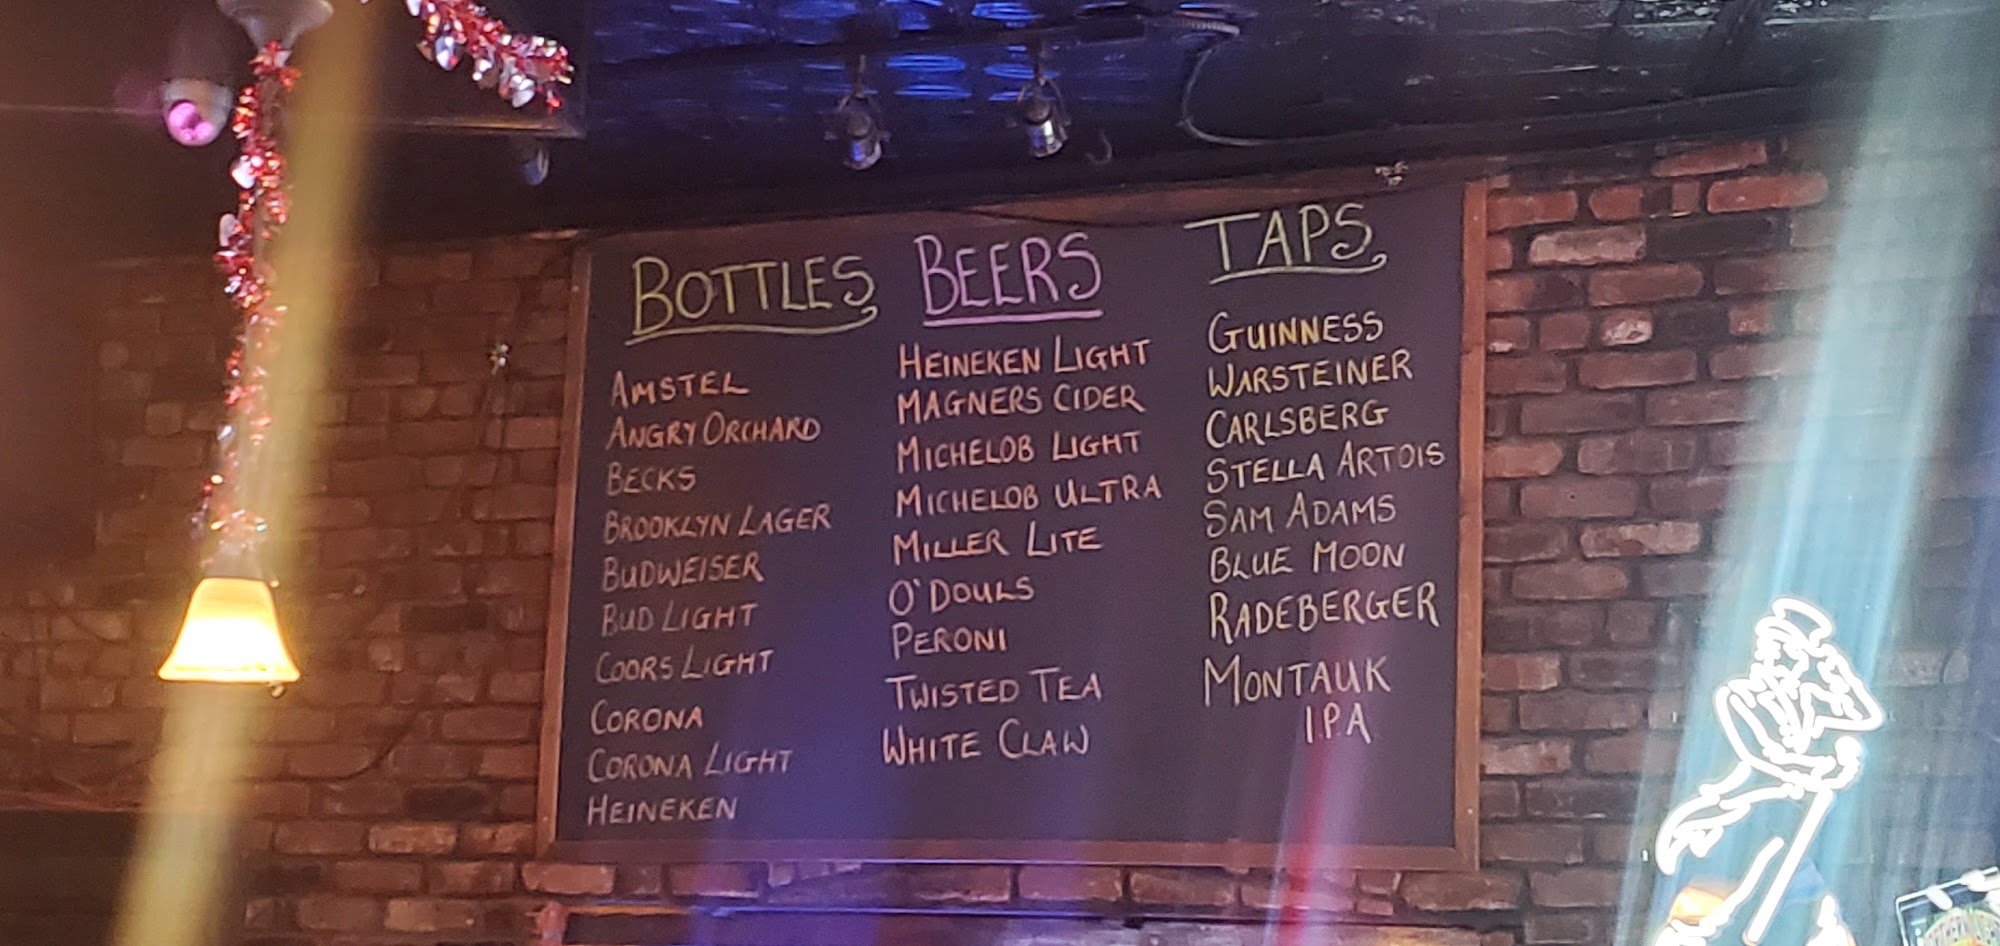 BOTTLES
AMSTEL
ANGRY ORCHARD
BECKS
BROOKLYN LAGER
BUDWEISER
BUD LIGHT
COORS LIGHT
CORONA
CORONA LIGHT
HEINEKEN
BEERS
HEINEKEN LIGHT
MAGNERS CIDER
MICHELOB LIGHT
MICHELOB ULTRA
MILLER LITE
O'DOULS
PERONI
TWISTED TEA
WHITE CLAW
TAPS
GUINNESS
WARSTEINER
CARLSBERG
STELLA ARTOIS
SAM ADAMS
BLUE MOON
RADEBERGER
MONTAUK
I.P.A